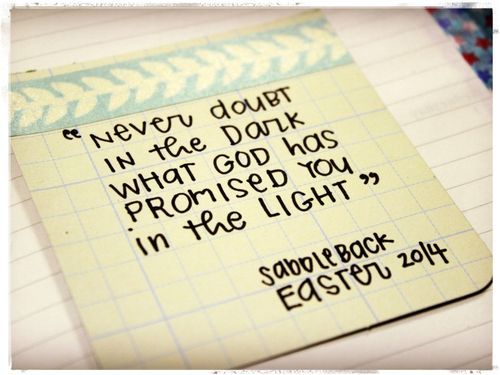 "Never doubt
in the dark
what God has
promised you
in the light"
SaddleBack
Easter 2014